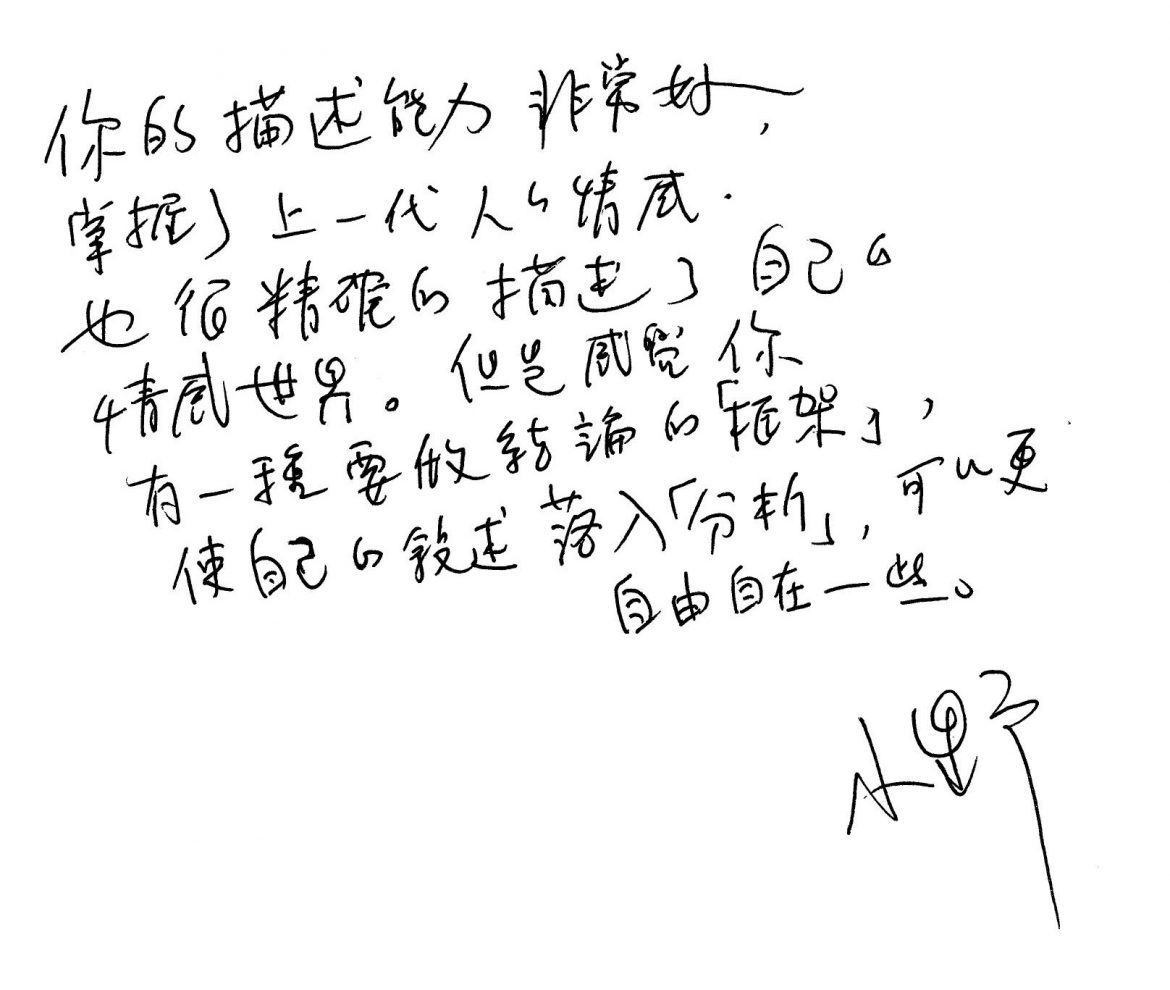 你的描述能力非常好，
掌握了上一代人的情感．
也很精確的描述了自己的
情感世界。但是感覺你
有一種要做結論的「框架」，
使自己的敘述落入「分析」，可以更
自由自在一些。
小野